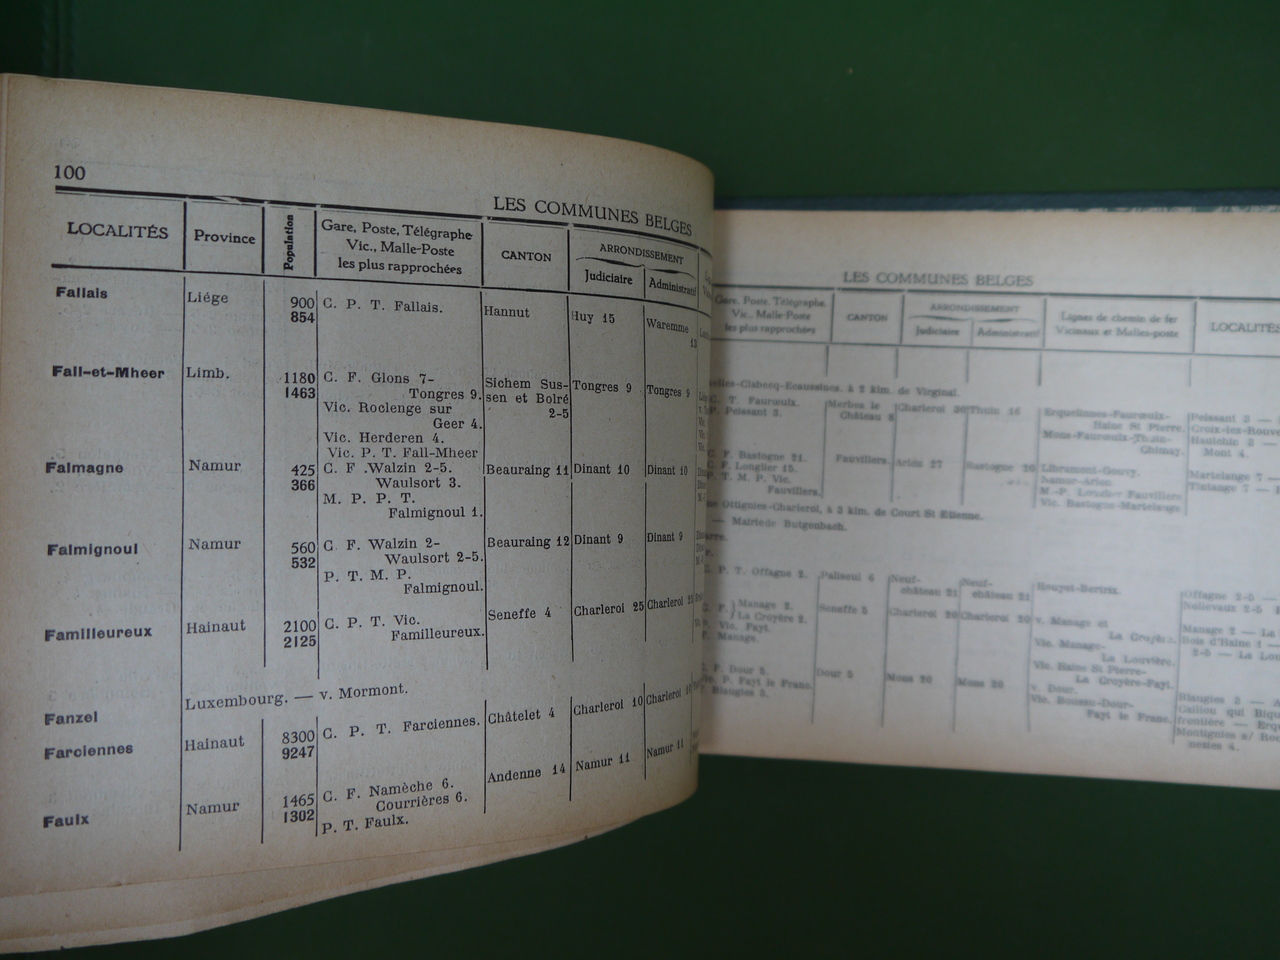 100
LES COMMUNES BELGES
LOCALITÉS Province Population Gare, Poste, Télégraphe Vic., Malle-Poste les plus rapprochées CANTON ARRONDISSEMENT Judiciaire Administratif
Fallais Liége 900 C. P. T. Fallais. Hannut Huy 15 Waremme
854 13
Fall-et-Mheer Limb. 1180 C. F. Glons 7- Sichem Sus- Tongres 9 Tongres 9
1463 Tongres 9. sen et Bolré
Vic. Roclenge sur 2-5
Geer 4.
Vic. Herderen 4.
Vic. P. T. Fall-Mheer
Falmagne Namur 425 C. F .Walzin 2-5. Beauraing 11 Dinant 10 Dinant 10
366 Waulsort 3.
M. P. P. T.
Falmignoul 1.
Falmignoul Namur 560 C. F. Walzin 2- Beauraing 12 Dinant 9 Dinant 9
532 Waulsort 2-5.
P. T. M. P.
Falmignoul.
Familleureux Hainaut 2100 C. P. T. Vic. Seneffe 4 Charleroi 25 Charleroi 25
2125 Familleureux.
Fanzel Luxembourg. — v. Mormont.
Farciennes Hainaut 8300 C. P. T. Farciennes. Châtelet 4 Charleroi 10 Charleroi 10
9247
Faulx Namur 1465 C. F. Namèche 6. Andenne 14 Namur 11 Namur 11
1302 Courrières 6.
P. T. Faulx.
LES COMMUNES BELGES
Gare, Poste, Télégraphe Vic., Malle-Poste les plus rapprochées CANTON ARRONDISSEMENT Judiciaire Administratif Lignes de chemin de fer Vicinaux et Malles-poste LOCALITÉS
à 2 kim. de Virginal.
T. Faurœulx. Merbes le Charleroi Thuin 16 Erquelinnes-Faurœulx- Peissant 3
Peissant 3. Château 8 Haine St Pierre.
F. Bastogne 21. Fauvillers. Arlon 27 Bastogne Libramont-Gouvy. Martelange 7
F. Longlier 15. Namur-Arlon Tintange 7
T. M. P. Vic.
Fauvillers. Vic. Bastogne-Martelange
Ottignies-Charleroi, à 3 kim. de Court St Etienne.
— Mairie de Butgenbach.
P. T. Offagne 2. Paliseul 6 Neuf- Neuf- Houyet-Bertrix. Offagne 2-5
château 21 château 21
Manage 2. Seneffe 5 Charleroi 20 Charleroi 20 v. Manage et Manage 2
La Croyère 2. La Croyère. Bois d'Haine 1
Vic. Fayt. Vic. Manage-
Manage. La Louvière.
Vic. Haine St Pierre-
La Croyère-Fayt.
F. Dour 5. Dour 5 Mons 20 Mons 20 v. Dour. Blaugies 3
P. Fayt le Franc. Vic. Boussu-Dour-
Blaugies 3. Fayt le Franc.